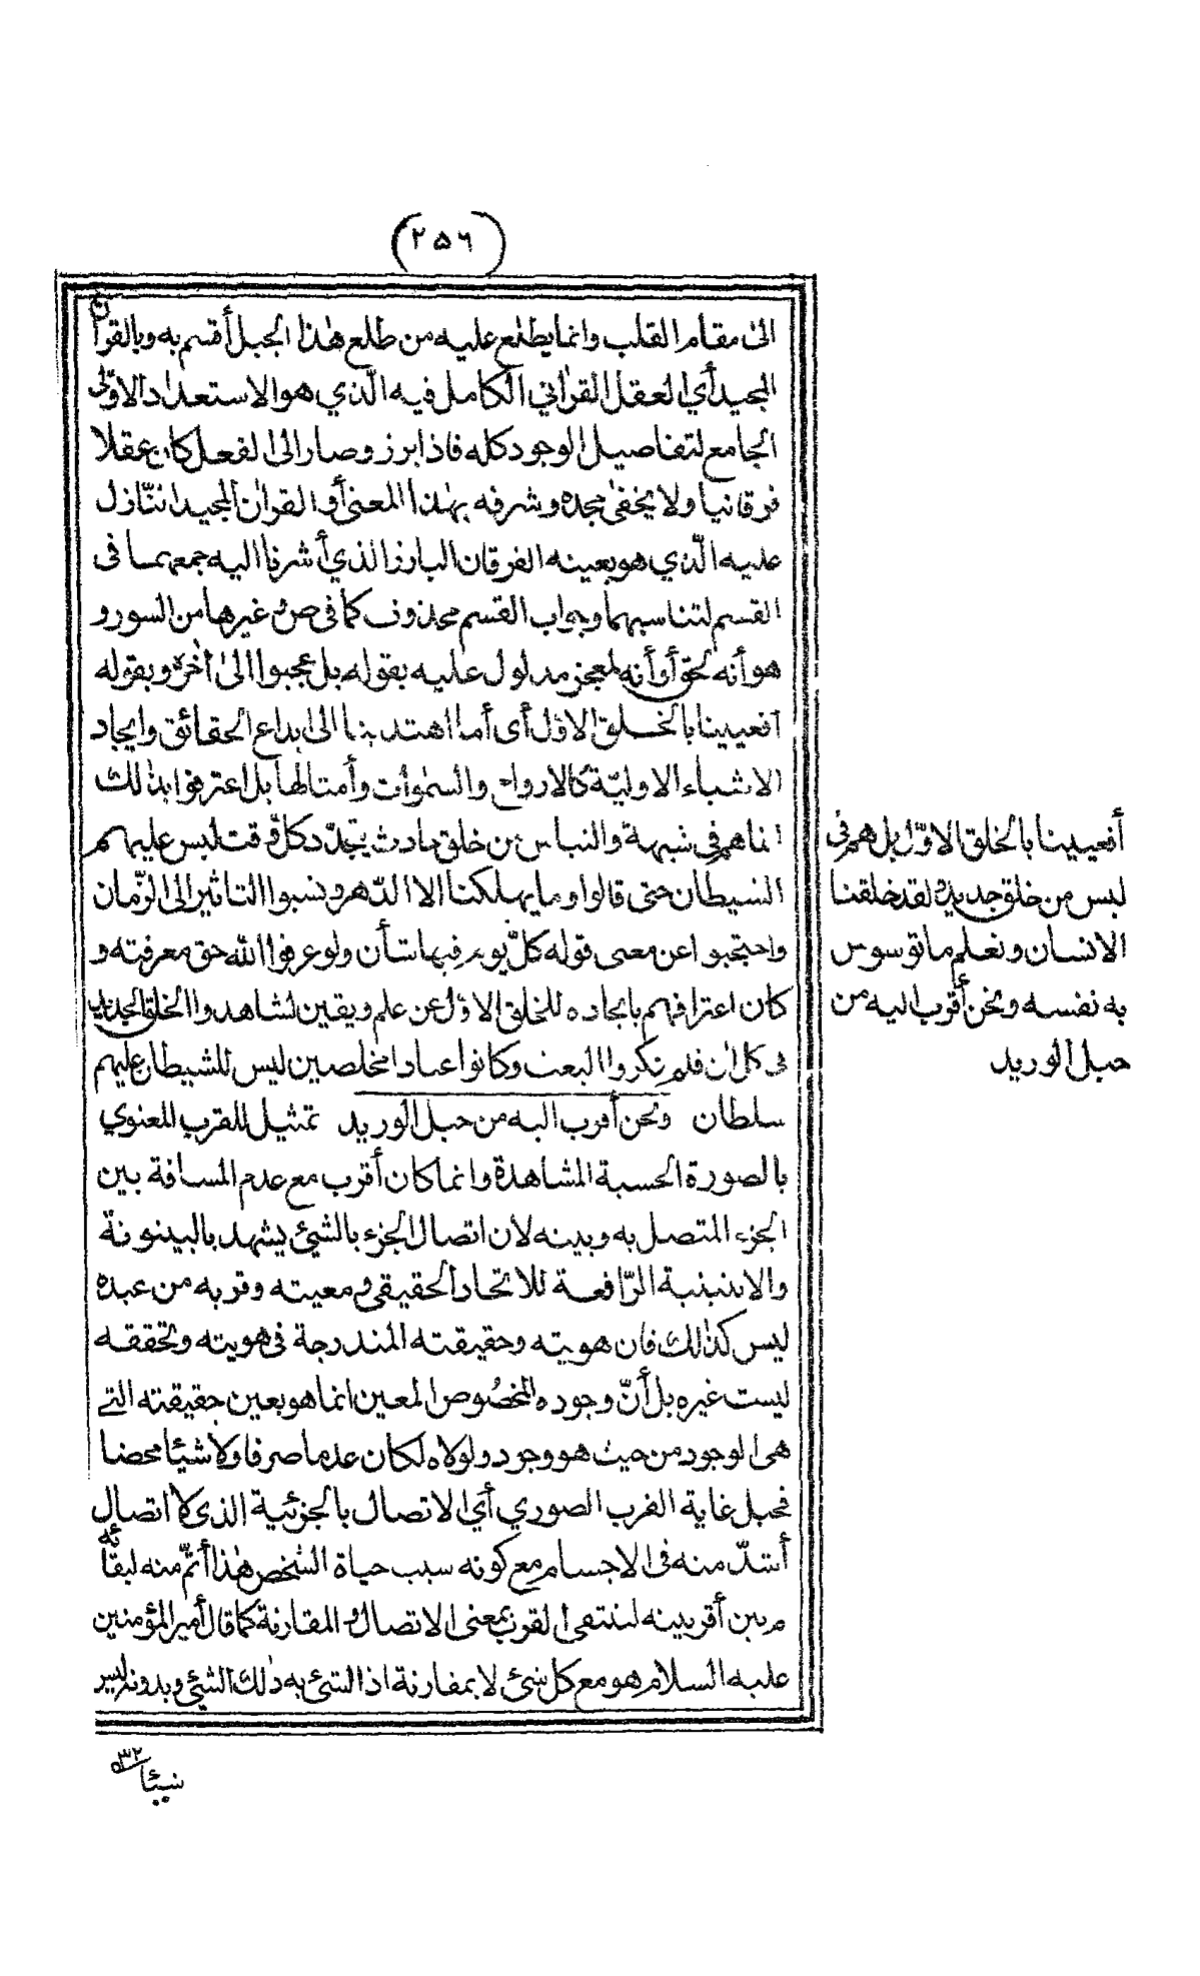 (٢٥٦)
الى مقام القلب وانما يطلع عليه من طلع هذا الجبل أقسم به وبالقرآن
المجيد أي العقل القرآني الكامل فيه الّذي هو الاستعداد الاوّلى
الجامع لتفاصيل الوجود كله فاذا برز وصار الى الفعل كان عقلا
فرقانيا ولا يخفى مجده وشرفه بهذا المعنى أو القرآن المجيد النّازل
عليه الّذي هو بعينه الفرقان البارز الذي أشرنا اليه جمعهما فى
القسم لتناسبهما وجواب القسم محذوف كما فى ص و غيرها من السور و
هو أنه لحق أو أنه لمعجز مدلول عليه بقوله بل عجبوا الى آخره وبقوله
أفعيينا بالخلق الاوّل أى أما اهتدينا الى ابداع الحقائق وايجاد
الاشياء الاوليّة كالارواح والسموات وأمثالها بل اعترفوا بذلك
انما هم فى شبهة والتباس من خلق حادث يتجدّد كل وقت لبس عليهم
الشيطان حتى قالوا وما يهلكنا الا الدّهر ونسبوا التاثير الى الزّمان
واحتجبوا عن معنى قوله كلّ يوم فيها شأن ولو عرفوا الله حق معرفته و
كان اعترافهم بايجاده للخلق الاوّل عن علم ويقين لشاهدوا الخلق الجديد
فى كل ان فلم ينكروا البعث وكانوا عبادا مخلصين ليس للشيطان عليهم
سلطان ونحن أقرب اليه من حبل الوريد تمثيل للقرب المعنوي
بالصورة الحسية المشاهدة وانما كان أقرب مع عدم المسافة بين
الجزء المتصل به وبينه لان اتصال الجزء بالشيئ يشهد بالبينونة
والاثنينية الرّافعة للاتحاد الحقيقى ومعيته وقربه من عبده
ليس كذلك فان هويته وحقيقته المندرجة فى هويته وتحققه
ليست غيره بل أنّ وجوده المخصوص المعين انما هو بعين حقيقته التے
هى الوجود من حيث هو وجود ولولاه لكان عدما صرفا ولا شيئا محضا
فحبل غاية القرب الصوري أي الاتصال بالجزئية الذى لا اتصال
أشدّ منه فى الاجسام مع كونه سبب حياة الشخص هذا أتمّ منه لبقائه
م بين أقربيته لينتفى القرب بمعنى الاتصال والمقارنة كما قال أمير المؤمنين
عليه السلام هو مع كل شئ لا بمقارنة اذ الشئ به ذلك الشيئ وبدونه ليس
شيئا
٥٣٢
أفعيينا بالخلق الاوّل بل هم فى
لبس من خلق جديد ولقد خلقنا
الانسان ونعلم ما توسوس
به نفسه ونحن أقرب اليه من
حبل الوريد